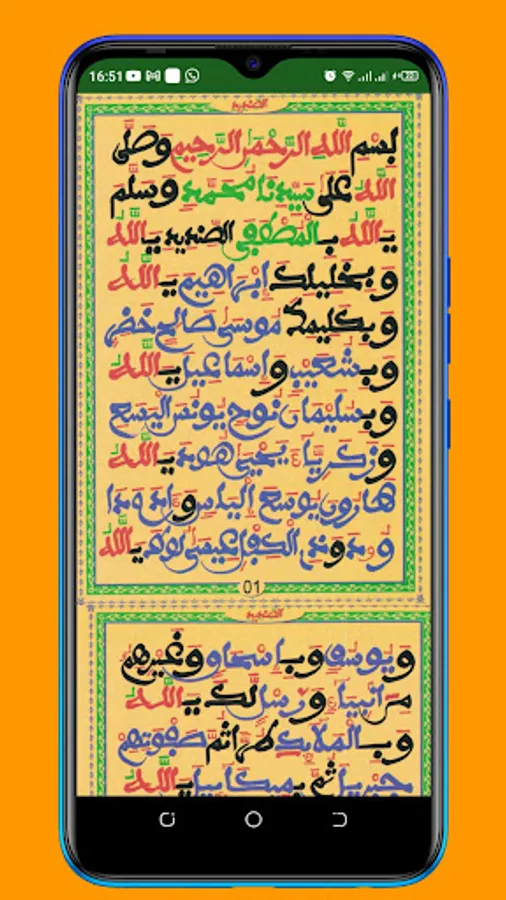 16:51
بسم الله الرحمن الرحيم وصلى
الله على سيدنا محمد وسلم
يا الله بالمصطفى الصنديد يا الله
وبخليلك إبراهيم يا الله
وبكليمك موسى صالح خضر
وبشعيب وإسماعيل يا الله
وبسليمان نوح يونس اليسع
وزكرياء يحيى هود يا الله
هارون يوشع إلياس وادم ودا
وود وذى الكفل عيسى لوط يا الله
01
ويوسف وبإسحاق وغيرهم
من أنبياء ورسل لك يا الله
وبالملائك طرا ثم صفوتهم
جبريل ثم بميكاييل يا الله